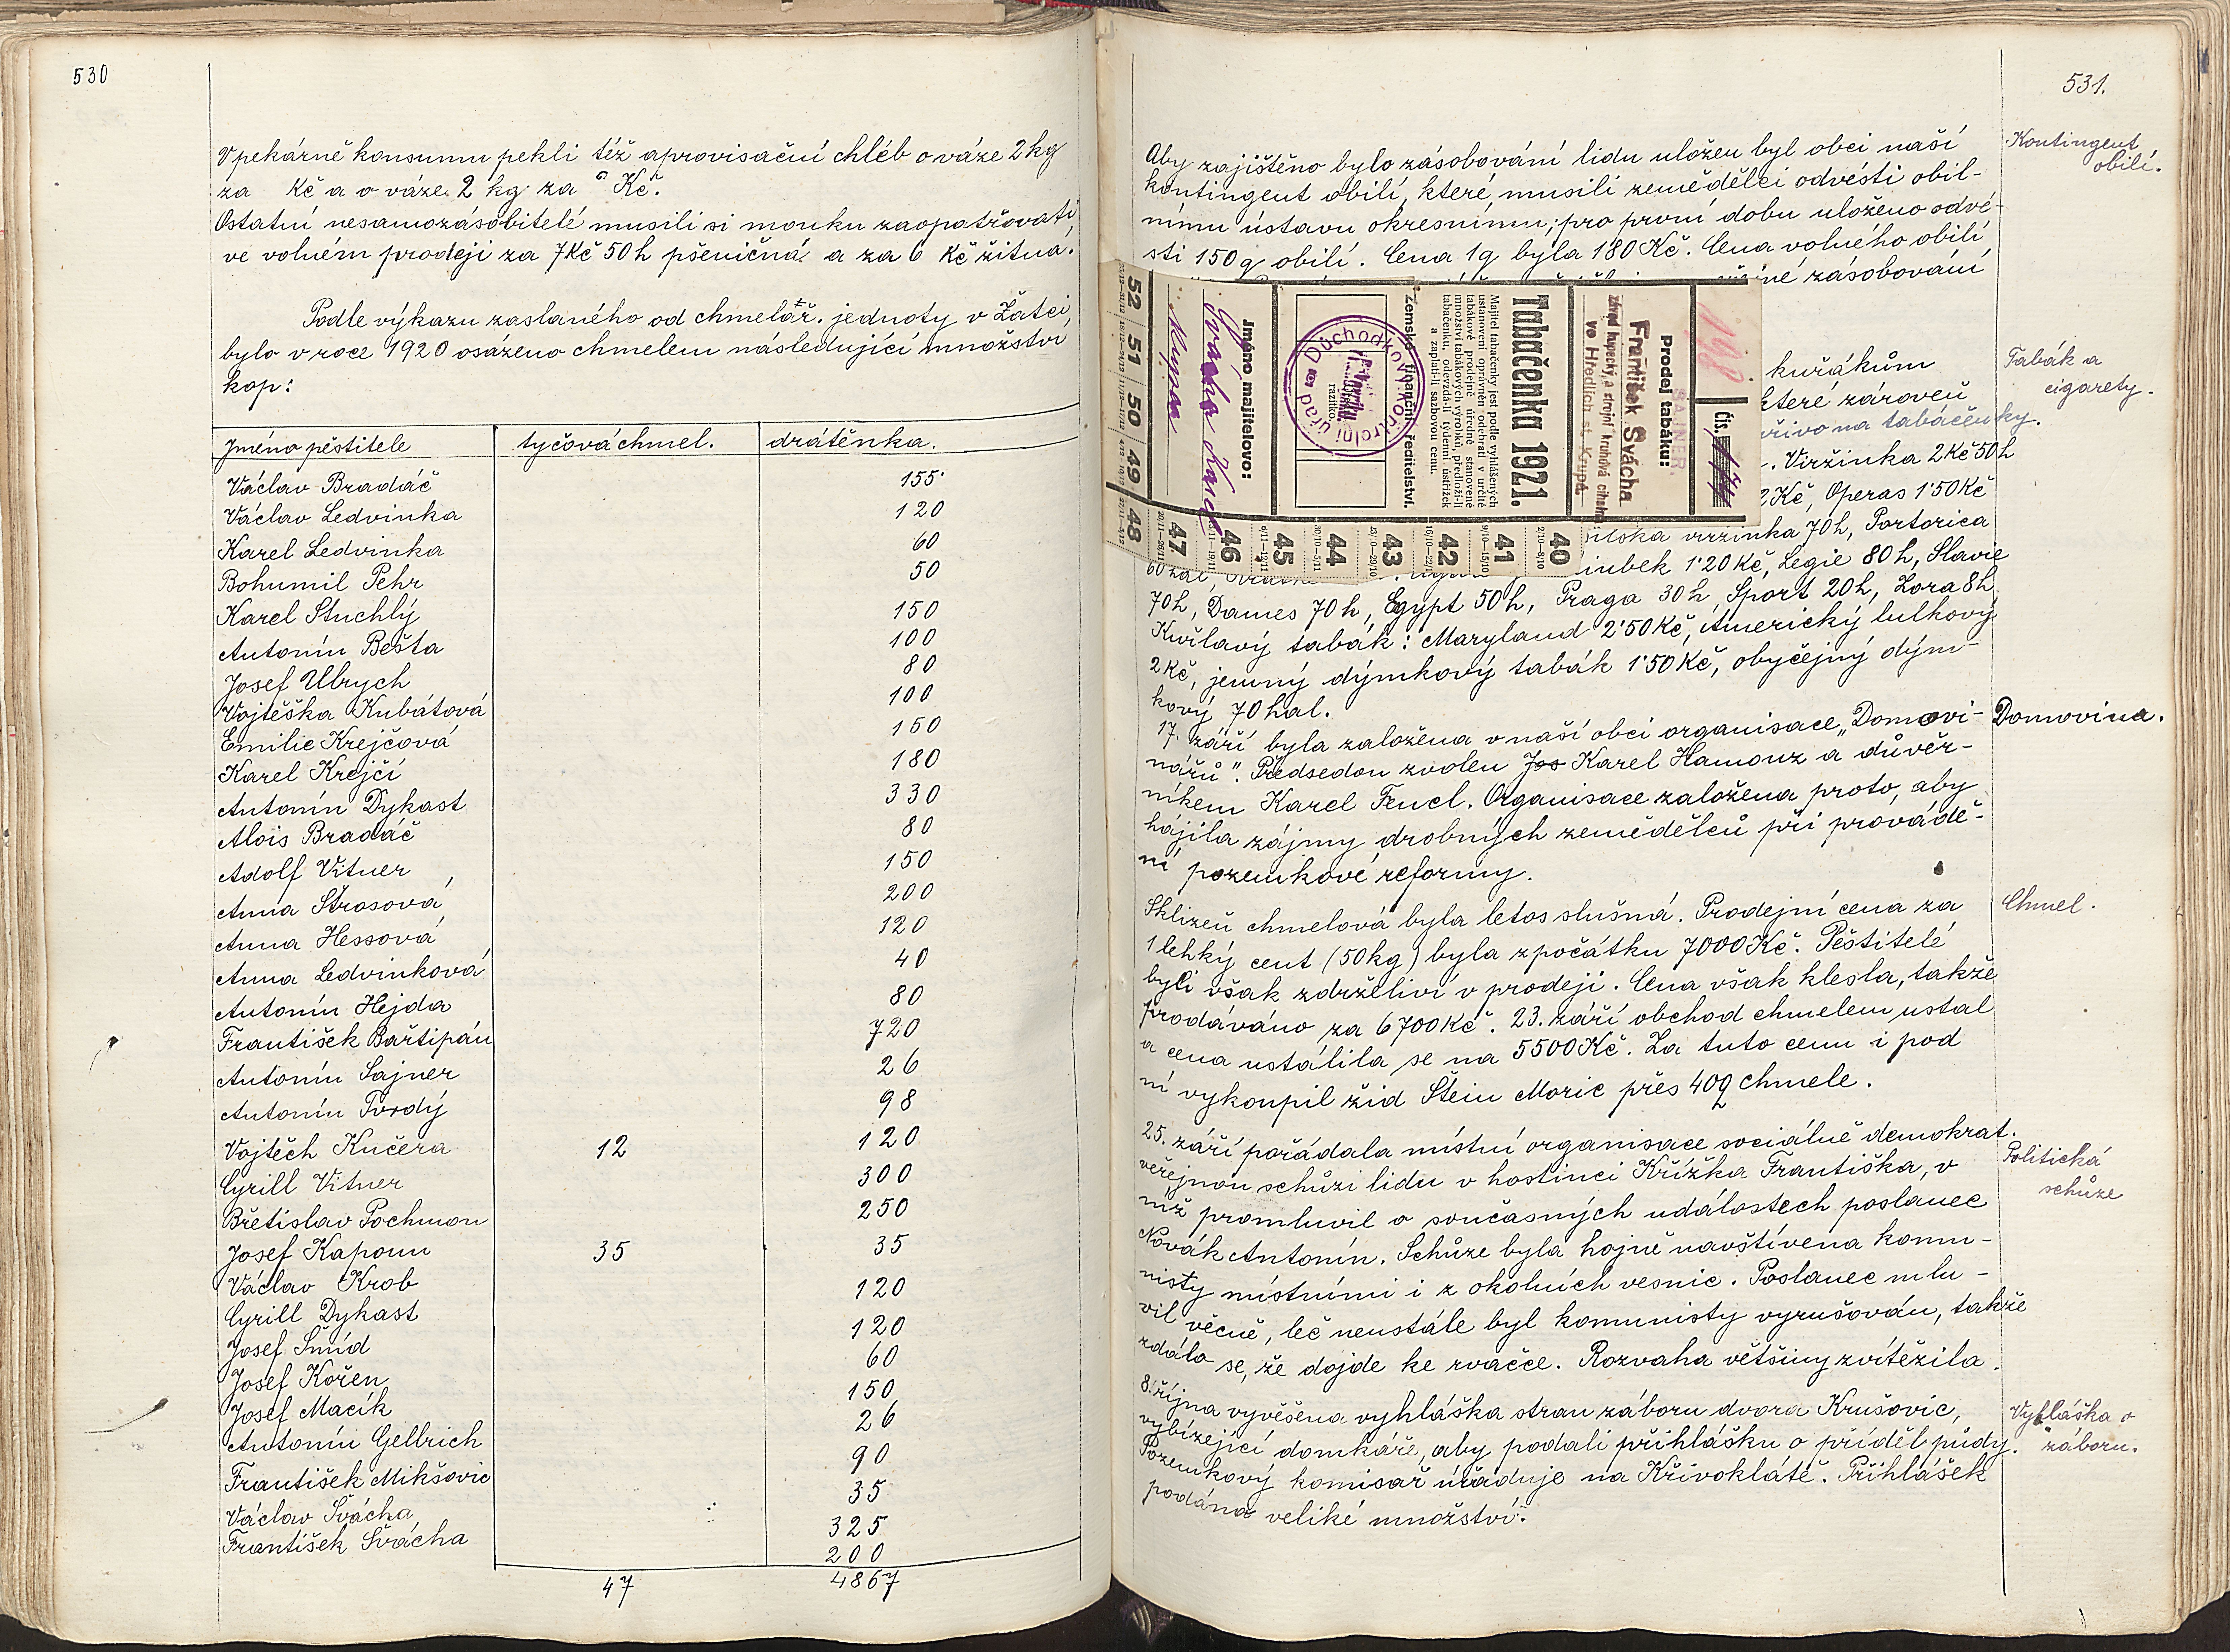 530
V pekárně konsumu pekli též aprovisační chléb o váze 2 kg
za Kč a o váze 2 kg za Kč.
Ostatní nesamozásobitelé musili si mouku zaopatřovati
ve volném prodeji za 7 Kč 50 h pšeničná a za 6 Kč žitná.
Podle výkazu zaslaného od chmelař. jednoty v Žatci,
bylo v roce 1920 osázeno chmelem následující množství
kop:
Jméno pěstitele tyčová chmel. drátěnka.
Václav Bradáč 155
Václav Ledvinka 120
Karel Ledvinka 60
Bohumil Pehr 50
Karel Stuchlý 150
Antonín Bešta 100
Josef Ulbrych 80
Vojtěška Kubátová 100
Emilie Krejčová 150
Karel Krejčí 180
Antonín Dykast 330
Alois Bradáč 80
Adolf Vitner 150
Anna Štrosová 200
Anna Hessová 120
Anna Ledvinková 40
Antonín Hejda 80
František Bařtipán 720
Antonín Sajner 26
Antonín Tvrdý 98
Vojtěch Kučera 12 120
Cyrill Vitner 300
Břetislav Pochmon 250
Josef Kapoun 35 35
Václav Krob 120
Cyrill Dykast 120
Josef Šmíd 60
Josef Kořen 150
Josef Macík 26
Antonín Gellrich 90
František Mikšovic 35
Václav Švácha 325
František Švácha 200
47 4867
531.
Aby zajištěno bylo zásobování lidu uložen byl obci naší
Kontingent
obilí.
kontingent obilí, které musili zemědělci odvésti obil-
nímu ústavu okresnímu; pro první dobu uloženo odvé-
sti 150 q obilí. Cena 1 q byla 180 Kč. Cena volného obilí
zásobování
kuřákům
Tabák a
cigarety.
které zároveň
na tabáčenky.
Viržinka 2 Kč 50 h
2 Kč, Operas 1'50 Kč
viržinka 70 h, Portorica
1'20 Kč, Legie 80 h, Slavie
70 h, Dames 70 h, Egypt 50 h, Praga 30 h, Sport 20 h, Zora 8 h.
Kuřlavý tabák: Maryland 2'50 Kč, Americký lulkový
2 Kč, jemný dýmkový tabák 1'50 Kč, obyčejný dým-
kový 70 hal.
17. září byla založena v naší obci organisace „Domovi-
Domovina.
nářů". Předsedou zvolen Jos Karel Hamouz a důvěr-
níkem Karel Fencl. Organisace založena proto, aby
hájila zájmy drobných zemědělců při provádě-
ní pozemkové reformy.
Sklizeň chmelová byla letos slušná. Prodejní cena za
Chmel.
1 lehký cent (50 kg) byla zpočátku 7000 Kč. Pěstitelé
byli však zdrželiví v prodeji. Cena však klesla, takže
prodáváno za 6700 Kč. 23. září obchod chmelem ustal
a cena ustálila se na 5500 Kč. Za tuto cenu i pod
ní vykoupil žid Štein Moric přes 40 q chmele.
25. září pořádala místní organisace sociálně demokrat.
Politická
schůze
veřejnou schůzi lidu v hostinci Křížka Františka, v
níž promluvil o současných událostech poslanec
Novák Antonín. Schůze byla hojně navštívena komu-
nisty místními i z okolních vesnic. Poslanec mlu-
vil věcně, leč neustále byl komunisty vyrušován, takže
zdálo se, že dojde ke rvačce. Rozvaha většiny zvítězila.
8. října vyvěšena vyhláška stran záboru dvora Krušovic,
Vyhláška o
záboru.
vybízející domkáře, aby podali přihlášku o příděl půdy.
Pozemkový komisař úřaduje na Křivoklátě. Přihlášek
podána veliké množství.
198
Čís. 174
Prodej tabáku:
SAJNER
František Svácha
ve Hředlích
Tabačenka 1921.
Majitel tabačenky jest podle vyhlášených
ustanovení oprávněn odebrati v určité
tabákové prodejně úředně stanovené
množství tabákových výrobků, předloží-li
tabačenku, odevzdá-li týdenní ústřižek
a zaplatí-li sazbovou cenu.
Zemské finanční ředitelství.
Důchodkový kontrolní úřad
razítko.
Jméno majitelovo:
Svácha Karel
52 51 50 49 48
47 46 45 44 43 42 41 40